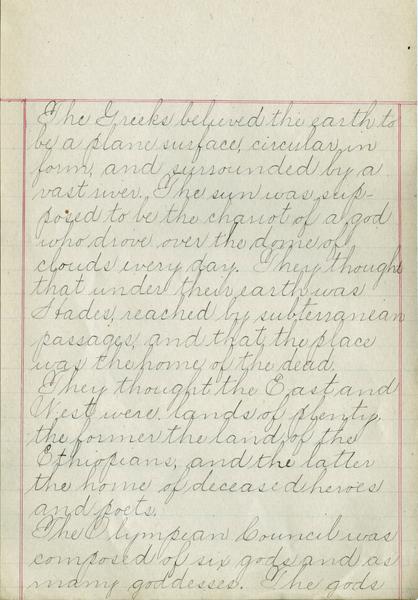 The Greeks believed the earth to
be a plane surface, circular in
form, and surrounded by a
vast river. The sun was sup-
posed to be the chariot of a god
who drove over the dome of
clouds every day. They thought
that under their earth was
Hades, reached by subterranean
passages, and that the place
was the home of the dead.
They thought the East and
West were lands of plenty,
the former the land of the
Ethiopians, and the latter
the home of deceased heroes
and poets.
The Olympean Council was
composed of six gods and as
many goddesses. The gods